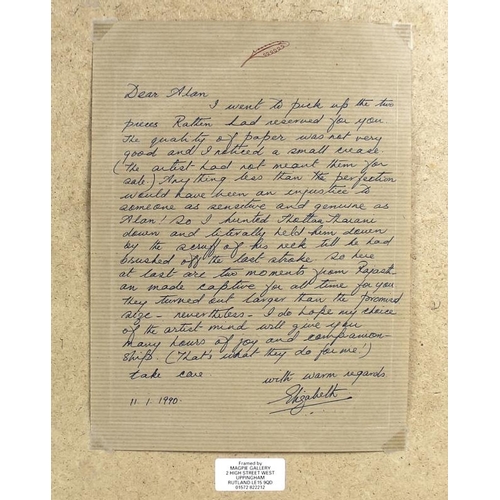 Dear Alan
I went to pick up the two
pieces Rathin had reserved for you
The quality of paper was not very
good and I noticed a small crease
(The artist had not meant them for
sale) Anything less than the perfection
would have been an injustice to
someone as sensitive and genuine as
Alan! So I hunted Thottan Tharani
down and literally held him down
by the scruff of his neck till he had
brushed off the last stroke so here
at last are two moments from Rajasth-
an made captive for all time for you
They turned out larger than the promised
size - nevertheless - I do hope my choice
of the artist mind will give you
many hours of joy and companion-
ship. (That's what they do for me!)
take care with warm regards
11.1.1990. Elizabeth
Framed by
MAGPIE GALLERY
2 HIGH STREET WEST
UPPINGHAM
RUTLAND LE15 9QD
01572 822212